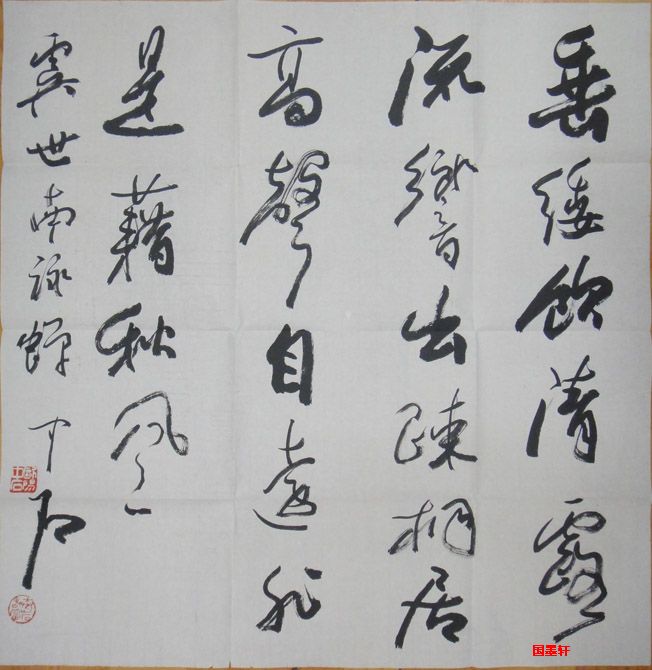 垂緌飲清露
流響出疎桐居
高聲自遠非
是藉秋風
虞世南詠蟬 中石
國墨軒